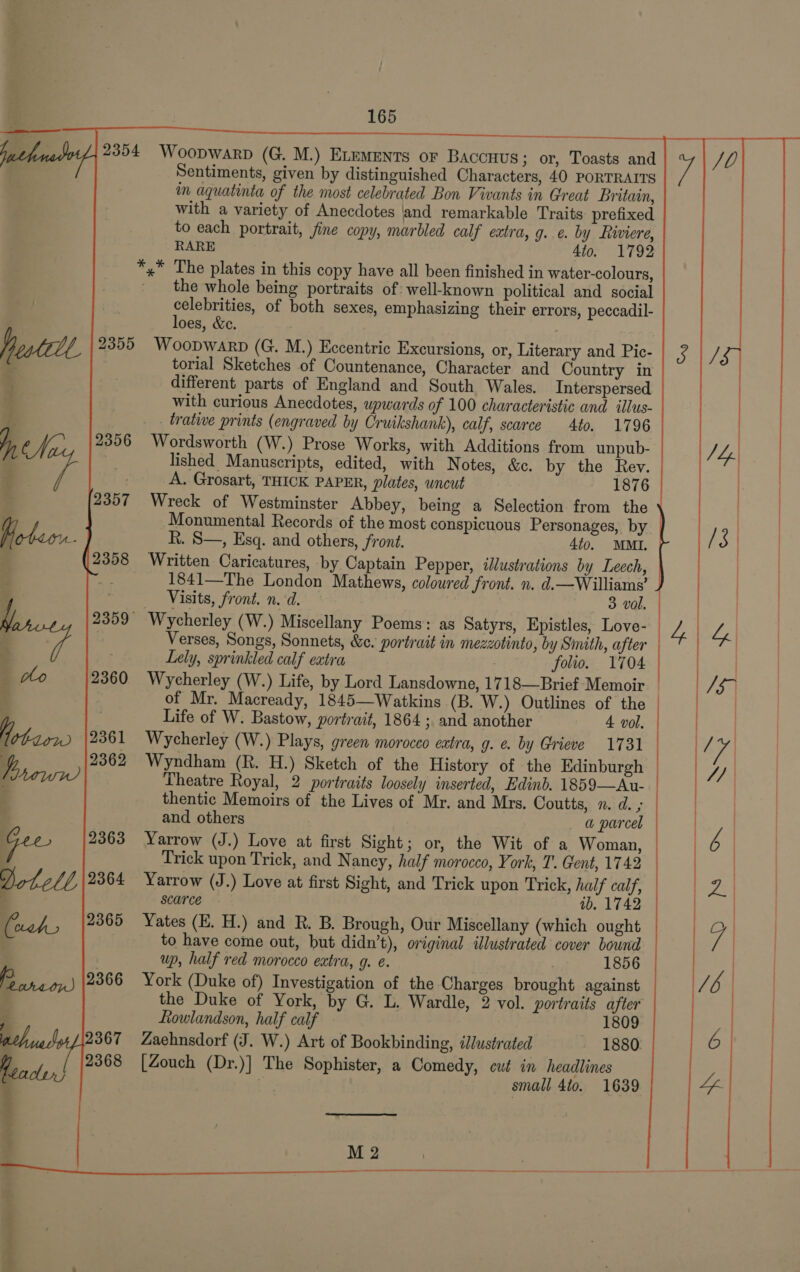 165
2354 Woodward (G. M.) Elements of Bacchus; or, Toasts and 7 10
Sentiments, given by distinguished Characters, 40 PORTRAITS
in aquatinta of the most celebrated Bon Vivants in Great Britain,
with a variety of Anecdotes and remarkable Traits prefixed
to each portrait, fine copy, marbled calf extra, g. e. by Riviere,
RARE 4to. 1792
*** The plates in this copy have all been finished in water-colours,
the whole being portraits of well-known political and social
celebrities, of both sexes, emphasizing their errors, peccadil-
loes, &c.
2355 Woodward (G. M.) Eccentric Excursions, or, Literary and Pic- 3 15
torial Sketches of Countenance, Character and Country in
different parts of England and South Wales. Interspersed
with curious Anecdotes, upwards of 100 characteristic and illus-
trative prints (engraved by Cruikshank), calf, scarce 4to. 1796
2356 Wordsworth (W.) Prose Works, with Additions from unpub- 14
lished Manuscripts, edited, with Notes, &c. by the Rev.
A. Grosart, THICK PAPER, plates, uncut 1876
2357 Wreck of Westminster Abbey, being a Selection from the
Monumental Records of the most conspicuous Personages, by
Hobson R. S—, Esq. and others, front. 4to. MMI. 13
2358 Written Caricatures, by Captain Pepper, illustrations by Leech,
1841—The London Mathews, coloured front. n. d.—Williams'
Visits, front. n. d. 3 vol.
2359 Wycherley (W.) Miscellany Poems: as Satyrs, Epistles, Love- 4 4
Verses, Songs, Sonnets, &c. portrait in mezzotinto, by Smith, after
Lely, sprinkled calf extra folio. 1704
do 2360 Wycherley (W.) Life, by Lord Lansdowne, 1718—Brief Memoir 15
of Mr. Macready, 1845—Watkins (B. W.) Outlines of the
Life of W. Bastow, portrait, 1864; and another 4 vol.
Hobson 2361 Wycherley (W.) Plays, green morocco extra, g. e. by Grieve 1731 17
Brown 2362 Wyndham (R. H.) Sketch of the History of the Edinburgh 11
Theatre Royal, 2 portraits loosely inserted, Edinb. 1859—Au-
thentic Memoirs of the Lives of Mr. and Mrs. Coutts, n. d.;
and others a parcel
Gee 2363 Yarrow (J.) Love at first Sight; or, the Wit of a Woman, 6
Trick upon Trick, and Nancy, half morocco, York, T. Gent, 1742
Dobell 2364 Yarrow (J.) Love at first Sight, and Trick upon Trick, half calf, 2
scarce ib. 1742
Cash 2365 Yates (E. H.) and R. B. Brough, Our Miscellany (which ought 9
to have come out, but didn't), original illustrated cover bound
up, half red morocco extra, g. e. 1856
Pearson 2366 York (Duke of) Investigation of the Charges brought against 16
the Duke of York, by G. L. Wardle, 2 vol. portraits after
Rowlandson, half calf 1809
2367 Zaehnsdorf (J. W.) Art of Bookbinding, illustrated 1880 6
Reader 2368 [Zouch (Dr.)] The Sophister, a Comedy, cut in headlines
small 4to. 1639 4
M 2